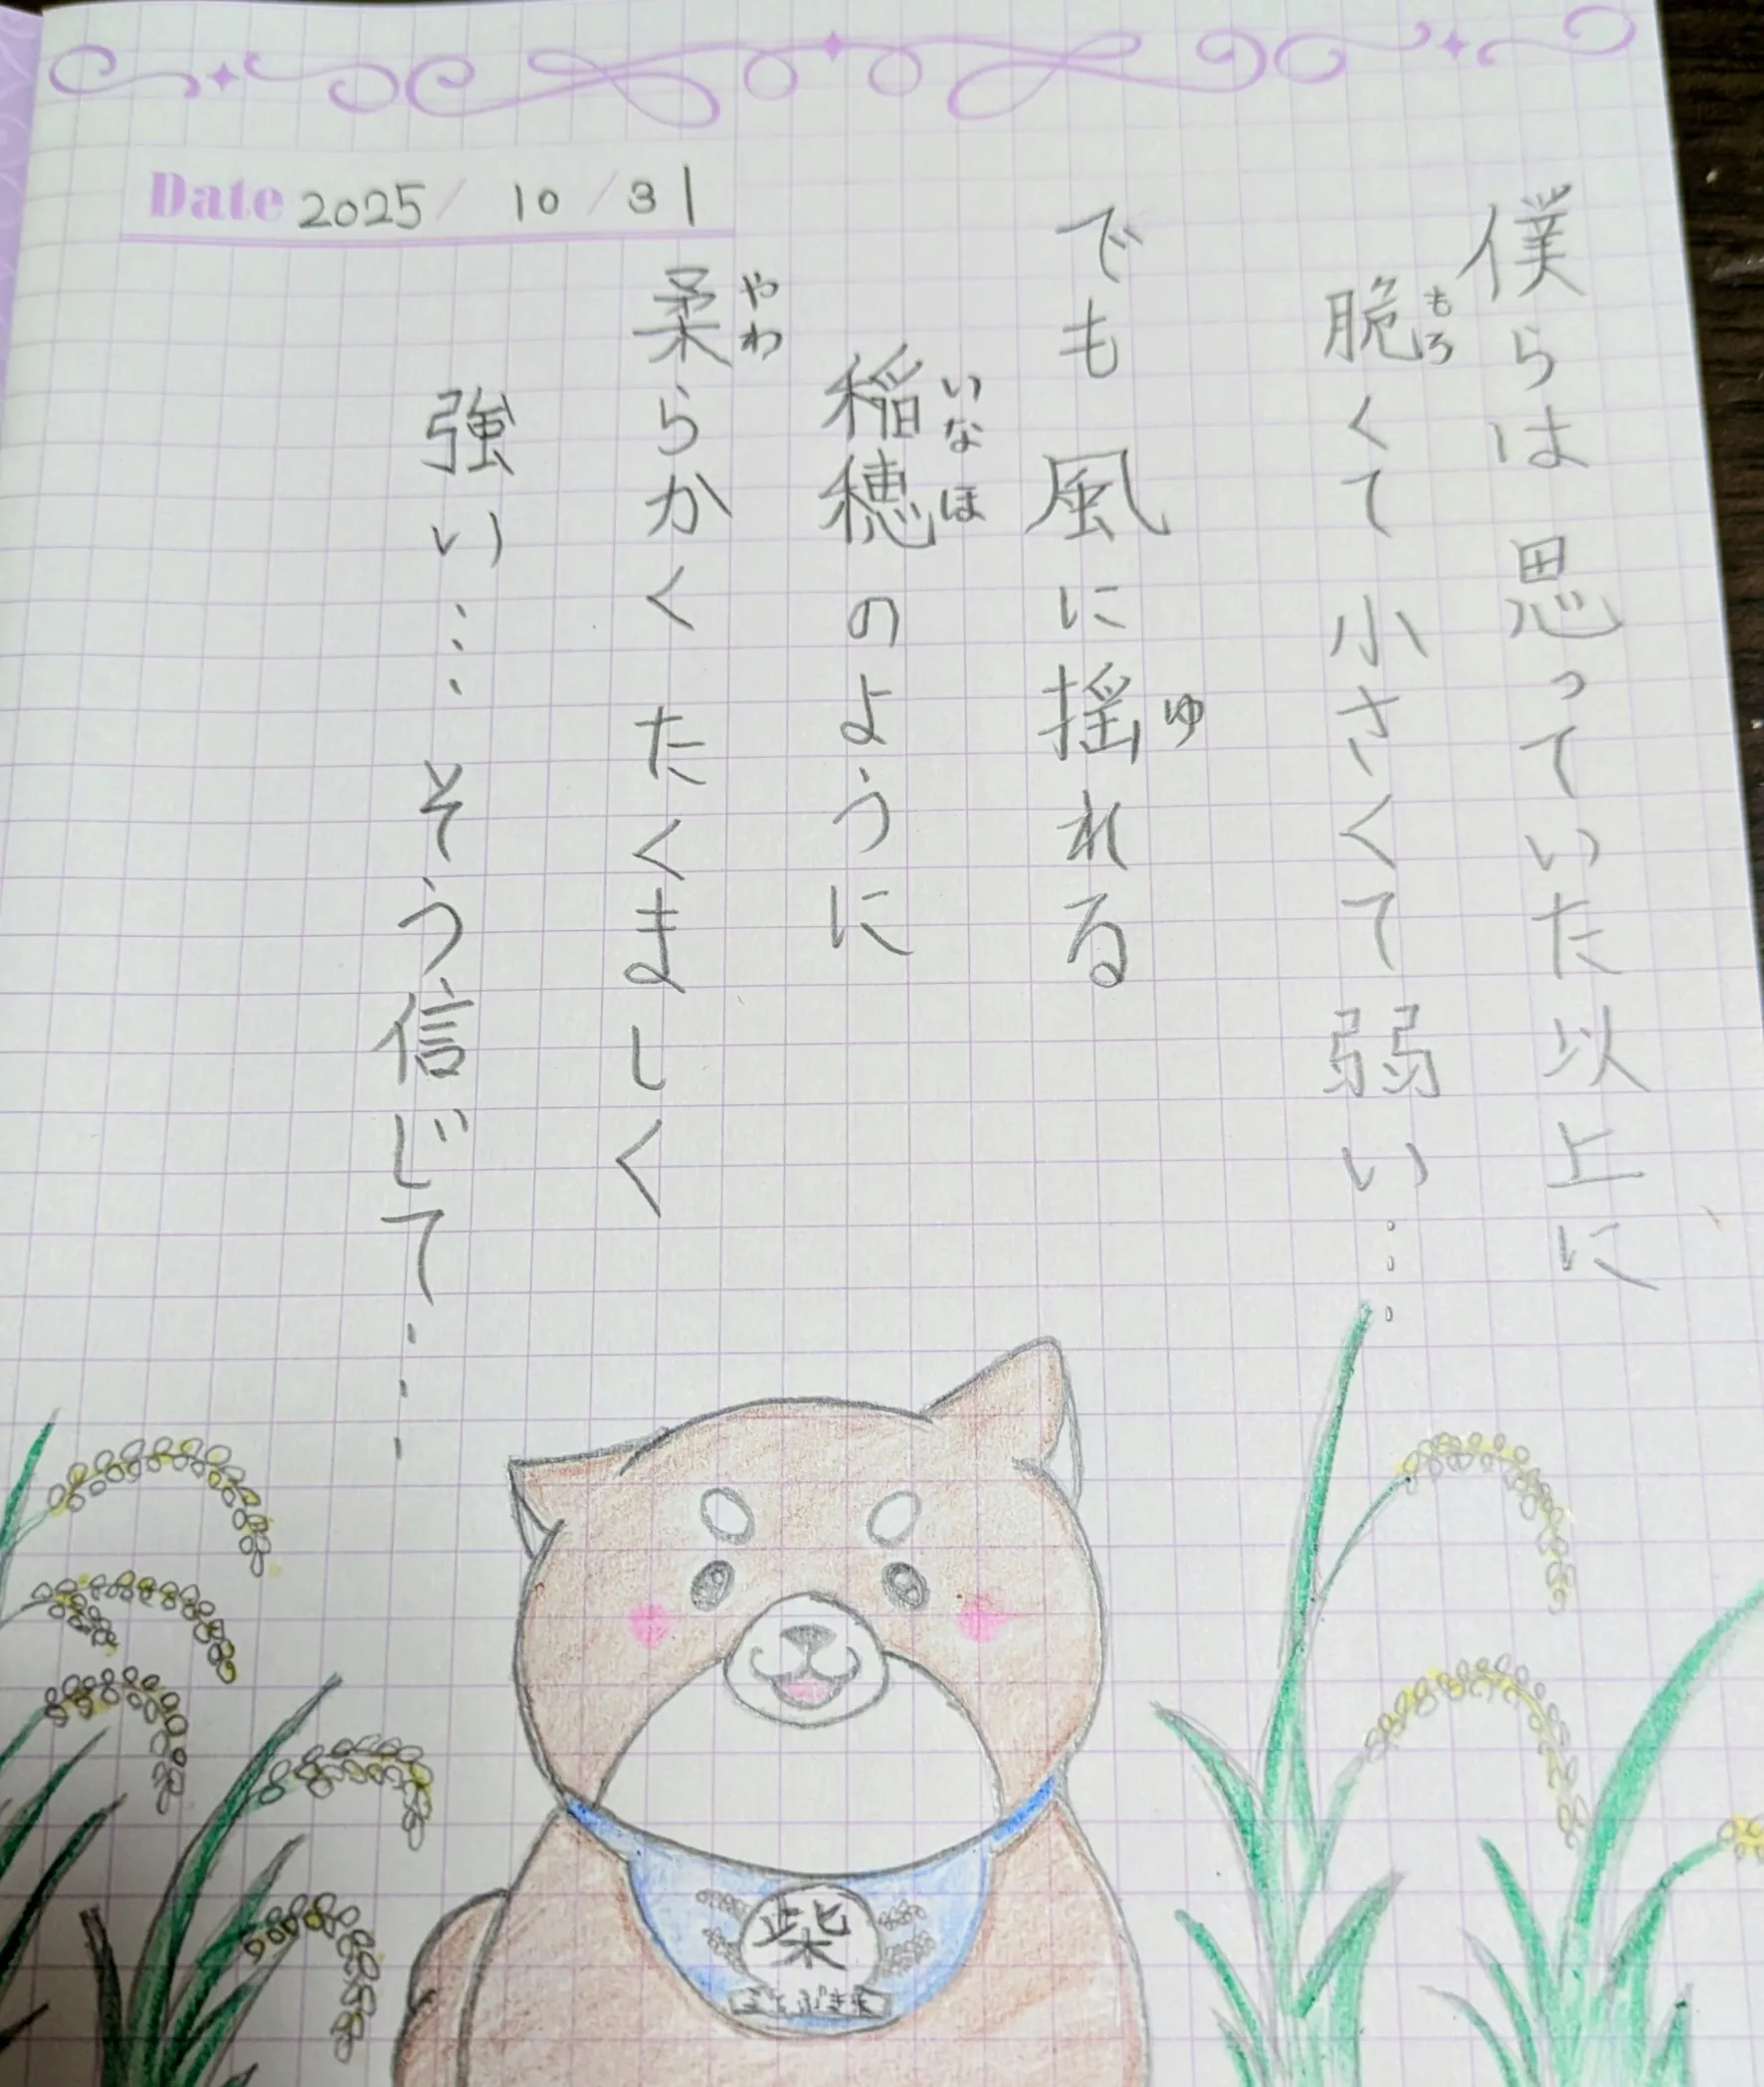 Date 2025/10/31
僕らは思っていた以上に
脆くて小さくて弱い…
もろ
でも風に揺れる
ゆ
稲穂のように
いなほ
柔らかくたくましく
やわ
強い…そう信じて…
柴